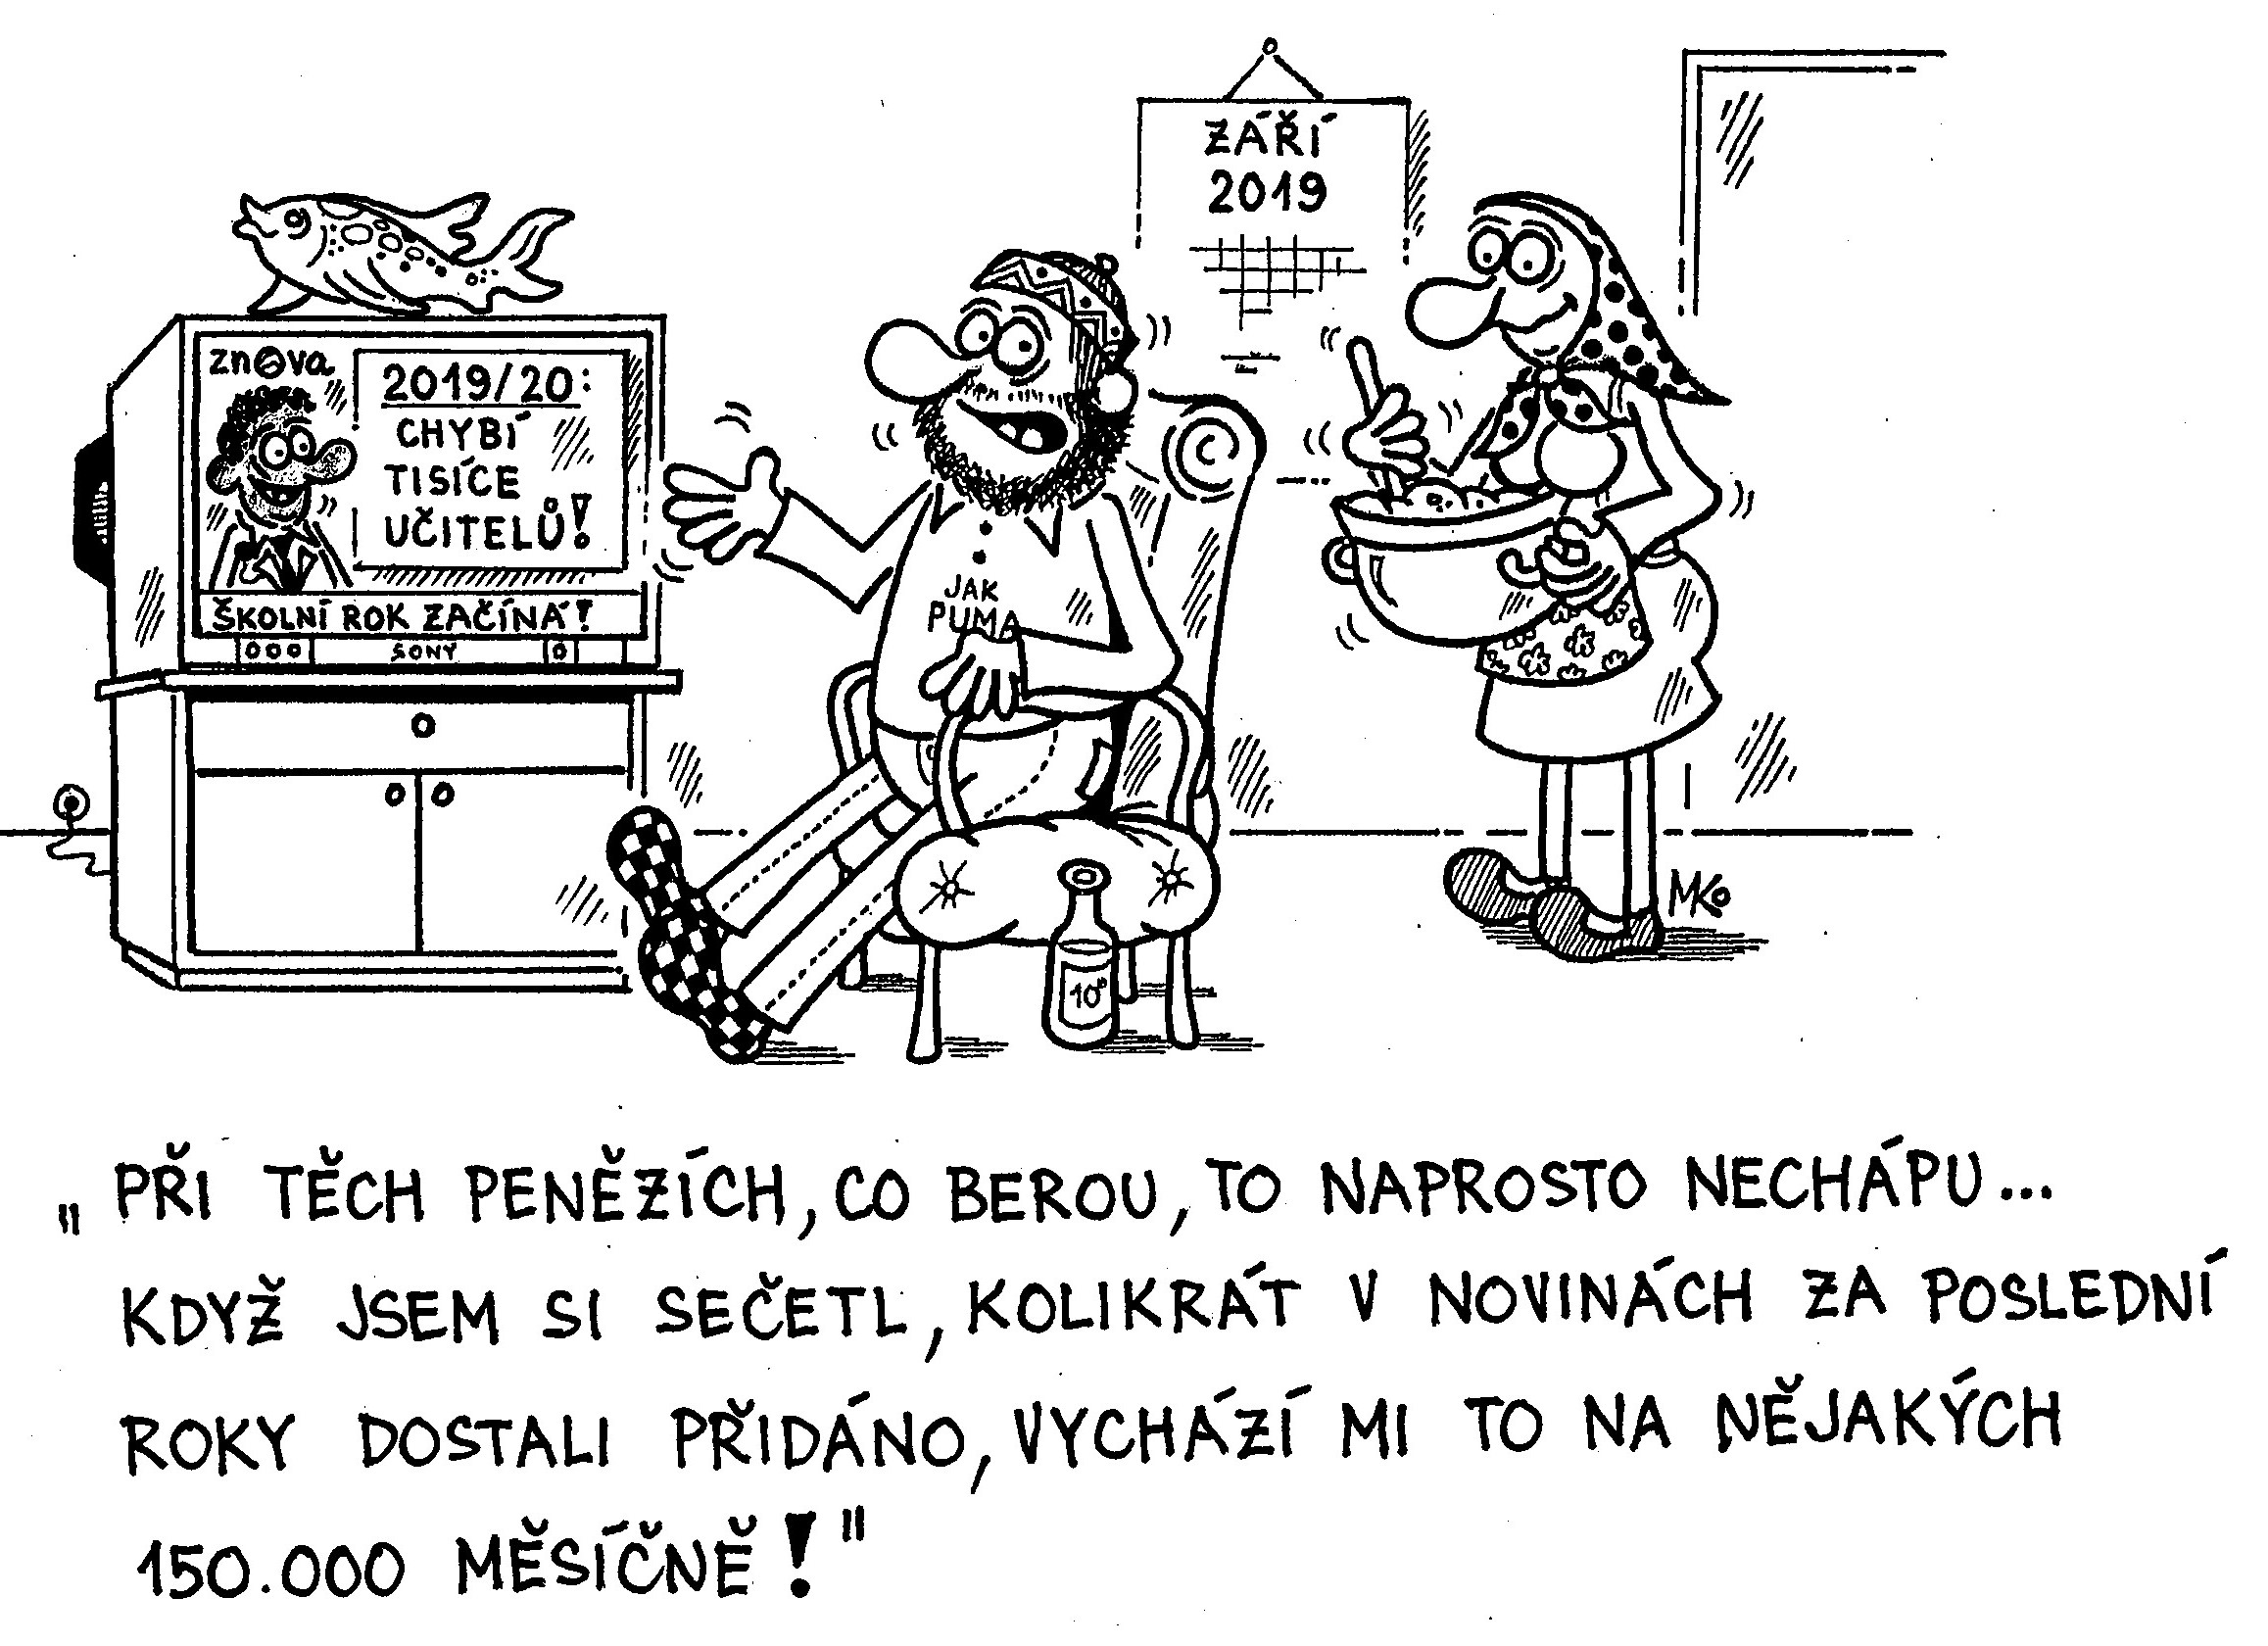 ZÁŘÍ
2019
znova
2019/20:
CHYBÍ
TISÍCE
UČITELŮ!
ŠKOLNÍ ROK ZAČÍNÁ!
SONY
JAK
PUMA
10°
MKo
„PŘI TĚCH PENĚZÍCH, CO BEROU, TO NAPROSTO NECHÁPU...
KDYŽ JSEM SI SEČETL, KOLIKRÁT V NOVINÁCH ZA POSLEDNÍ
ROKY DOSTALI PŘIDÁNO, VYCHÁZÍ MI TO NA NĚJAKÝCH
150.000 MĚSÍČNĚ!"